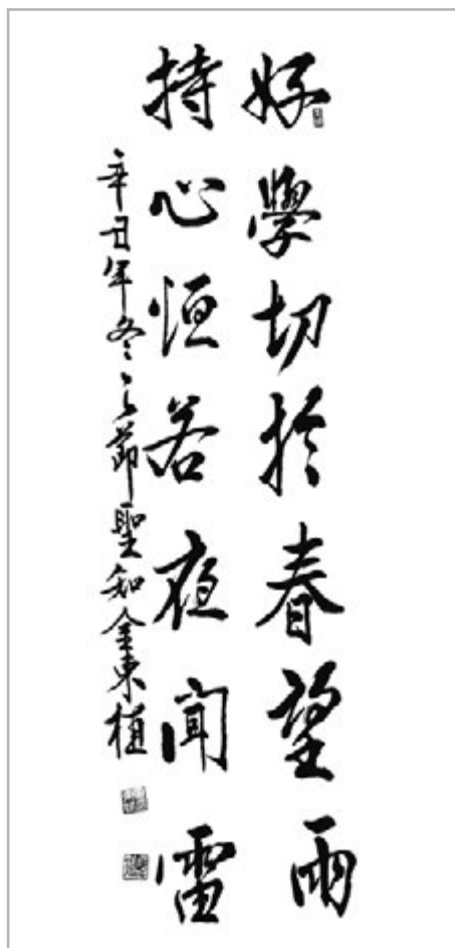 好學切於春望雨
持心恒若夜聞雷
辛丑年冬之節聖知金東植